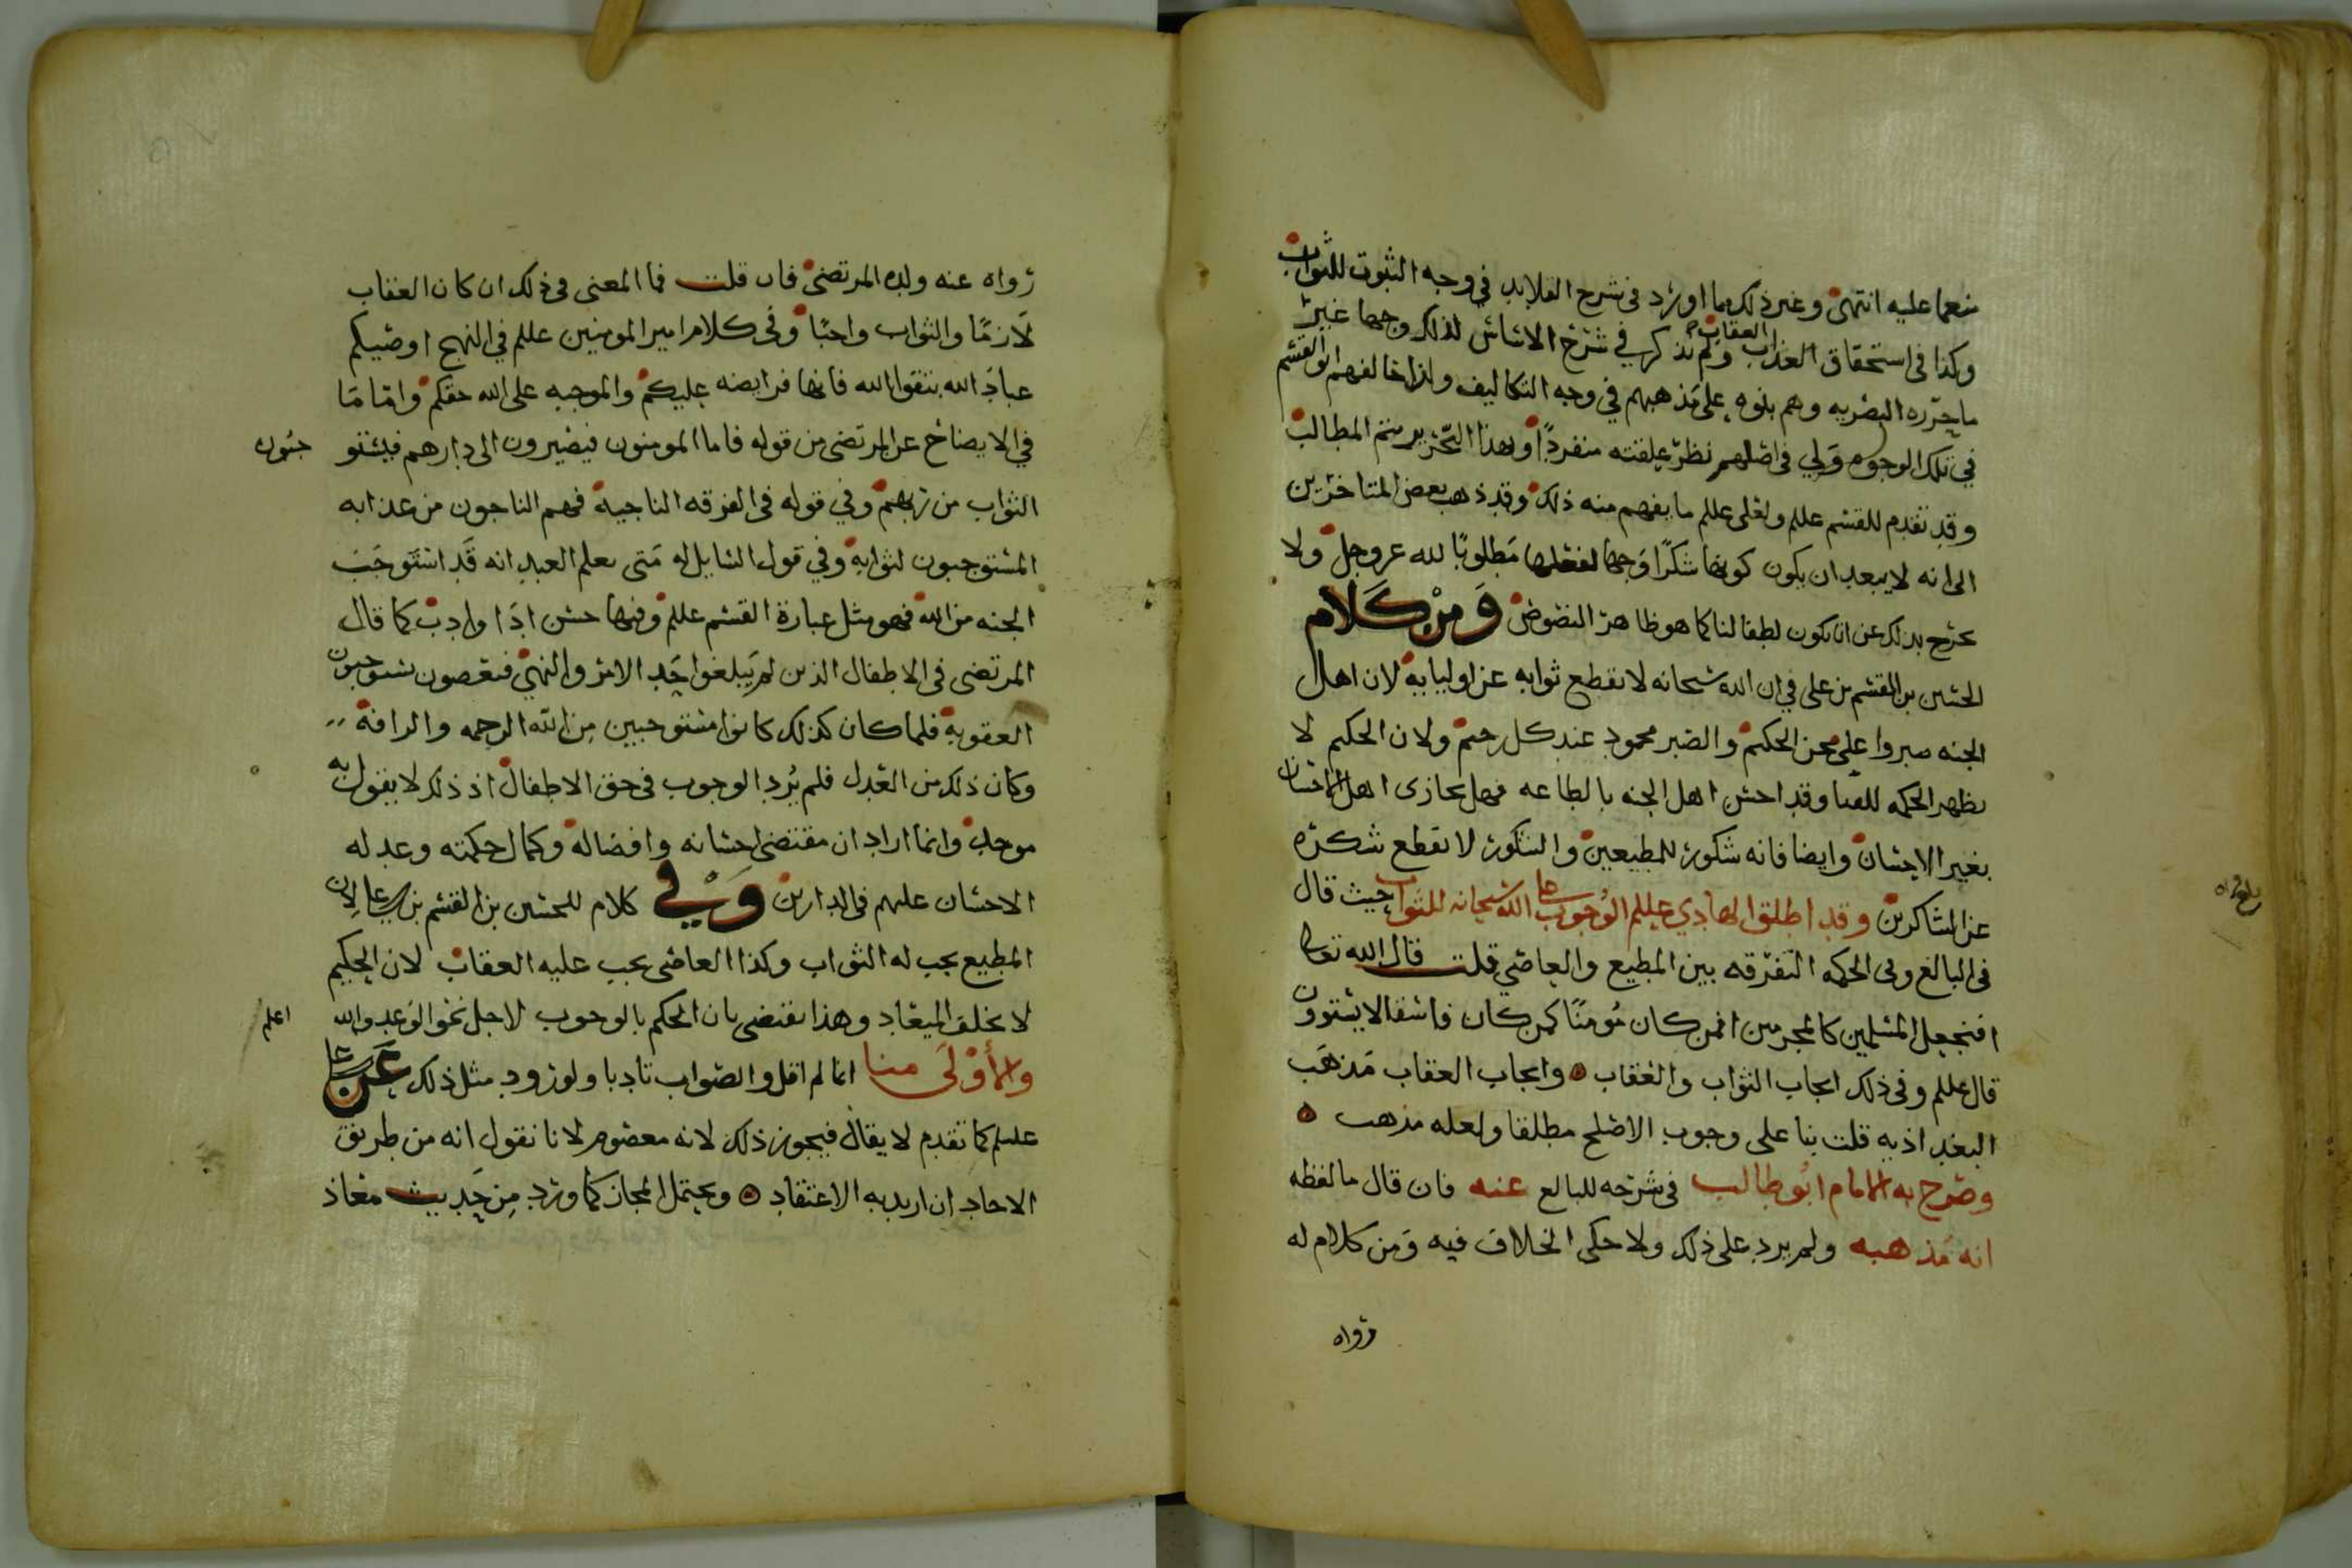 منعما عليه انتهى وغير ذلك مما اورد في شرح القلايد في وجه الثبوت للثواب
وكذا في استحقاق العذاب العقاب ولم نذكر في شرح الاساس لذلك وجها غير
ما حرره البصريه وهم بنوه على مذهبهم في وجه التكاليف ولذا خالفهم ابو القسم
في تلك الوجوه ولي في اصلهم نظر علقته منفردا وبهذا التحرير يتم المطالب
وقد تقدم للقسم عللم ولعلي عللم ما يفهم منه ذلك وقد ذهب بعض المتاخرين
الى انه لا يبعد ان يكون كونها شكرا وجها لفعلها مطلوبا لله عز وجل ولا
يخرج بذلك عن ان تكون لطفا لنا كما هو ظاهر النصوص ومن كلام
الحسين بن القسم بن علي في ان الله سبحانه لا يقطع ثوابه عن اوليايه لان اهل
الجنه صبروا على محن الحكيم والصبر محمود عند كل رحيم ولان الحكيم لا
يظهر الحكمه للفنا وقد احسن اهل الجنه بالطاعه فهل يجازى اهل الاحسان
بغير الاحسان وايضا فانه شكور للمطيعين والشكور لا يقطع شكره
عن الشاكرين وقد اطلق الهادي عللم الوجوب على الله سبحانه للثواب حيث قال
في البالغ وفي الحكمه التفرقه بين المطيع والعاصي قلت قال الله تعالى
افنجعل المسلمين كالمجرمين افمن كان مومنا كمن كان فاسقا لا يستوون
قال عللم وفي ذلك ايجاب الثواب والعقاب وايجاب العقاب مذهب
البغداذيه قلت بنا على وجوب الاصلح مطلقا ولعله مذهب
وصرح به الامام ابو طالب في شرحه للبالغ عنه فان قال ما لفظه
انه مذهبه ولم يرد على ذلك ولا حكى الخلاف فيه ومن كلام له
رواه
رواه عنه ولده المرتضى فان قلت فما المعنى في ذلك ان كان العقاب
لازما والثواب واجبا وفي كلام امير المومنين عللم في النهج اوصيكم
عباد الله بتقوا الله فانها فرايضه عليكم والموجبه على الله حقكم واما ما
في الايضاح عن المرتضى من قوله فاما المومنون فيصيرون الى دارهم فيستو جبون
الثواب من ربهم وفي قوله في الفرقه الناجيه فهم الناجون من عذابه
المستوجبون لثوابه وفي قول السايل له متى يعلم العبد انه قد استوجب
الجنه من الله فهو مثل عبارة القسم عللم وفيها حسن ادا وادب كما قال
المرتضى في الاطفال الذين لم يبلغوا حد الامر والنهي فيعصون يستوجبون
العقوبة فلما كان كذلك كانوا مستوجبين من الله الرحمه والرافه
وكان ذلك من العدل فلم يرد الوجوب في حق الاطفال اذ ذلك لا يقول به
موحد وانما اراد ان مقتضى احسانه وافضاله وكمال حكمته وعدله
الاحسان عليهم في الدارين وفي كلام للحسين بن القسم بن علي لان
المطيع يجب له الثواب وكذا العاصي يجب عليه العقاب لان الحكيم
لا يخلف الميعاد وهذا يقتضي بان الحكم بالوجوب لاجل نحو الوعد والله اعلم
والأولى منا انما لم اقل والصواب تادبا ولورود مثل ذلك عن علي
عللم كما تقدم لا يقال فيجوز ذلك لانه معصوم لانا نقول انه من طريق
الاحاد ان اريد به الاعتقاد ويحتمل المجاز كما ورد من حديث معاذ